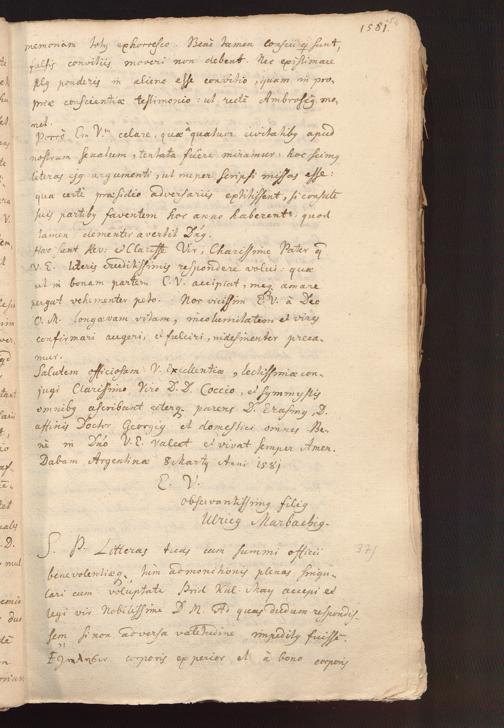 1581.
memoriam toty exhorresco. Bene tamen conscii q sunt,
falsis convitiis moveri non debent. Nec existimare
plg ponderis in alieno esse convitio, quam in pro,
priæ conscientiæ testimonio: ut recte Ambrosig mo,
net.
Porrò Em Vm celare, quæ a quatuor civitatibg apud
nostrum senatum, tentata fuêre miramur. hoc scimg
literas ejg argumenti, ut nuper scripsi missas esse:
qua certè præsidio adversariis extitissent, si consule
suis partibg faventem hoc anno haberent: quod
tamen clementer avertit Dñg.
Hæc sunt Rev. et Clarisse Vir, Charissime Pater q
V. E. literis eruditissimis respondere volui: quæ
ut in bonam partem E. V. accipiat, meq amare
pergat vehementer peto. Nos vicissim E. V. à Deo
O. M. longævam vitam, incolumitatem et vires
confirmari augeri, et fulciri, indesinenter preca-
mur.
Salutem officiosam V. Excellentiæ, lectissimæ con,
jugi Clarissimo Viro D. D. Coccio, et symmystis
omnibg ascribunt parens D. Erasmg, D.
affinis Doctor Georgig et domestici omnes. Be,
nè in Dño V. E. valeat et vivat semper Amen.
Dabam Argentinæ 8 Martij Anni 1581
E. V.
observantissimg filig
Ulricg Marbachig.
S. P. Litteras tuas cum summi officii
benevolentiæq, tum admonitionis plenas singu-
lari cum voluptate Brid Kal. May accepi et
legi vir Nobilissime D M. Ad quas dudum respondis-
sem si non adversa valetudine impeditg fuissê
corporis experior et à bono corporis